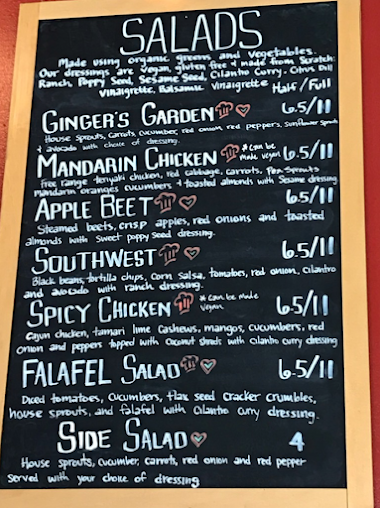 SALADS
Made using organic greens and Vegetables.
Our dressings are Vegan, gluten free & made from Scratch:
Ranch, Poppy Seed, Sesame Seed, Cilantro Curry, Citrus Dill
Vinaigrette, Balsamic Vinaigrette Half/Full
GINGER'S GARDEN 6.5/11
House Sprouts, carrots, cucumber, red onion, red peppers, Sunflower Sprouts
& avocado with choice of dressing.
MANDARIN CHICKEN *can be made vegan 6.5/11
free range teriyaki chicken, red cabbage, carrots, Pea Sprouts
mandarin oranges cucumbers & toasted almonds with Sesame dressing
APPLE BEET 6.5/11
Steamed beets, crisp apples, red onions and toasted
almonds with sweet poppy seed dressing.
SOUTHWEST 6.5/11
Black beans, tortilla chips, Corn Salsa, tomatoes, red onion, cilantro
and avocado with ranch dressing.
SPICY CHICKEN *can be made vegan 6.5/11
Cajun chicken, tamari lime cashews, mangos, cucumbers, red
onion and peppers topped with coconut shreds with cilantro curry dressing
FALAFEL SALAD 6.5/11
Diced tomatoes, cucumbers, flax seed cracker crumbles,
house sprouts, and falafel with cilantro curry dressing.
SIDE SALAD 4
House sprouts, cucumber, carrots, red onion and red pepper
served with your choice of dressing